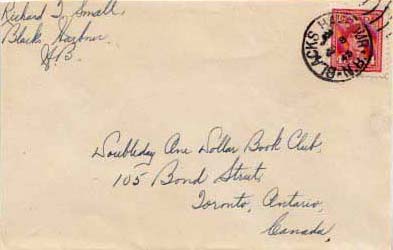 Richard T. Small
Blacks Harbour
N.B.
BLACKS HARBOUR N.B.
Doubleday One Dollar Book Club,
105 Bond Street,
Toronto, Ontario,
Canada.